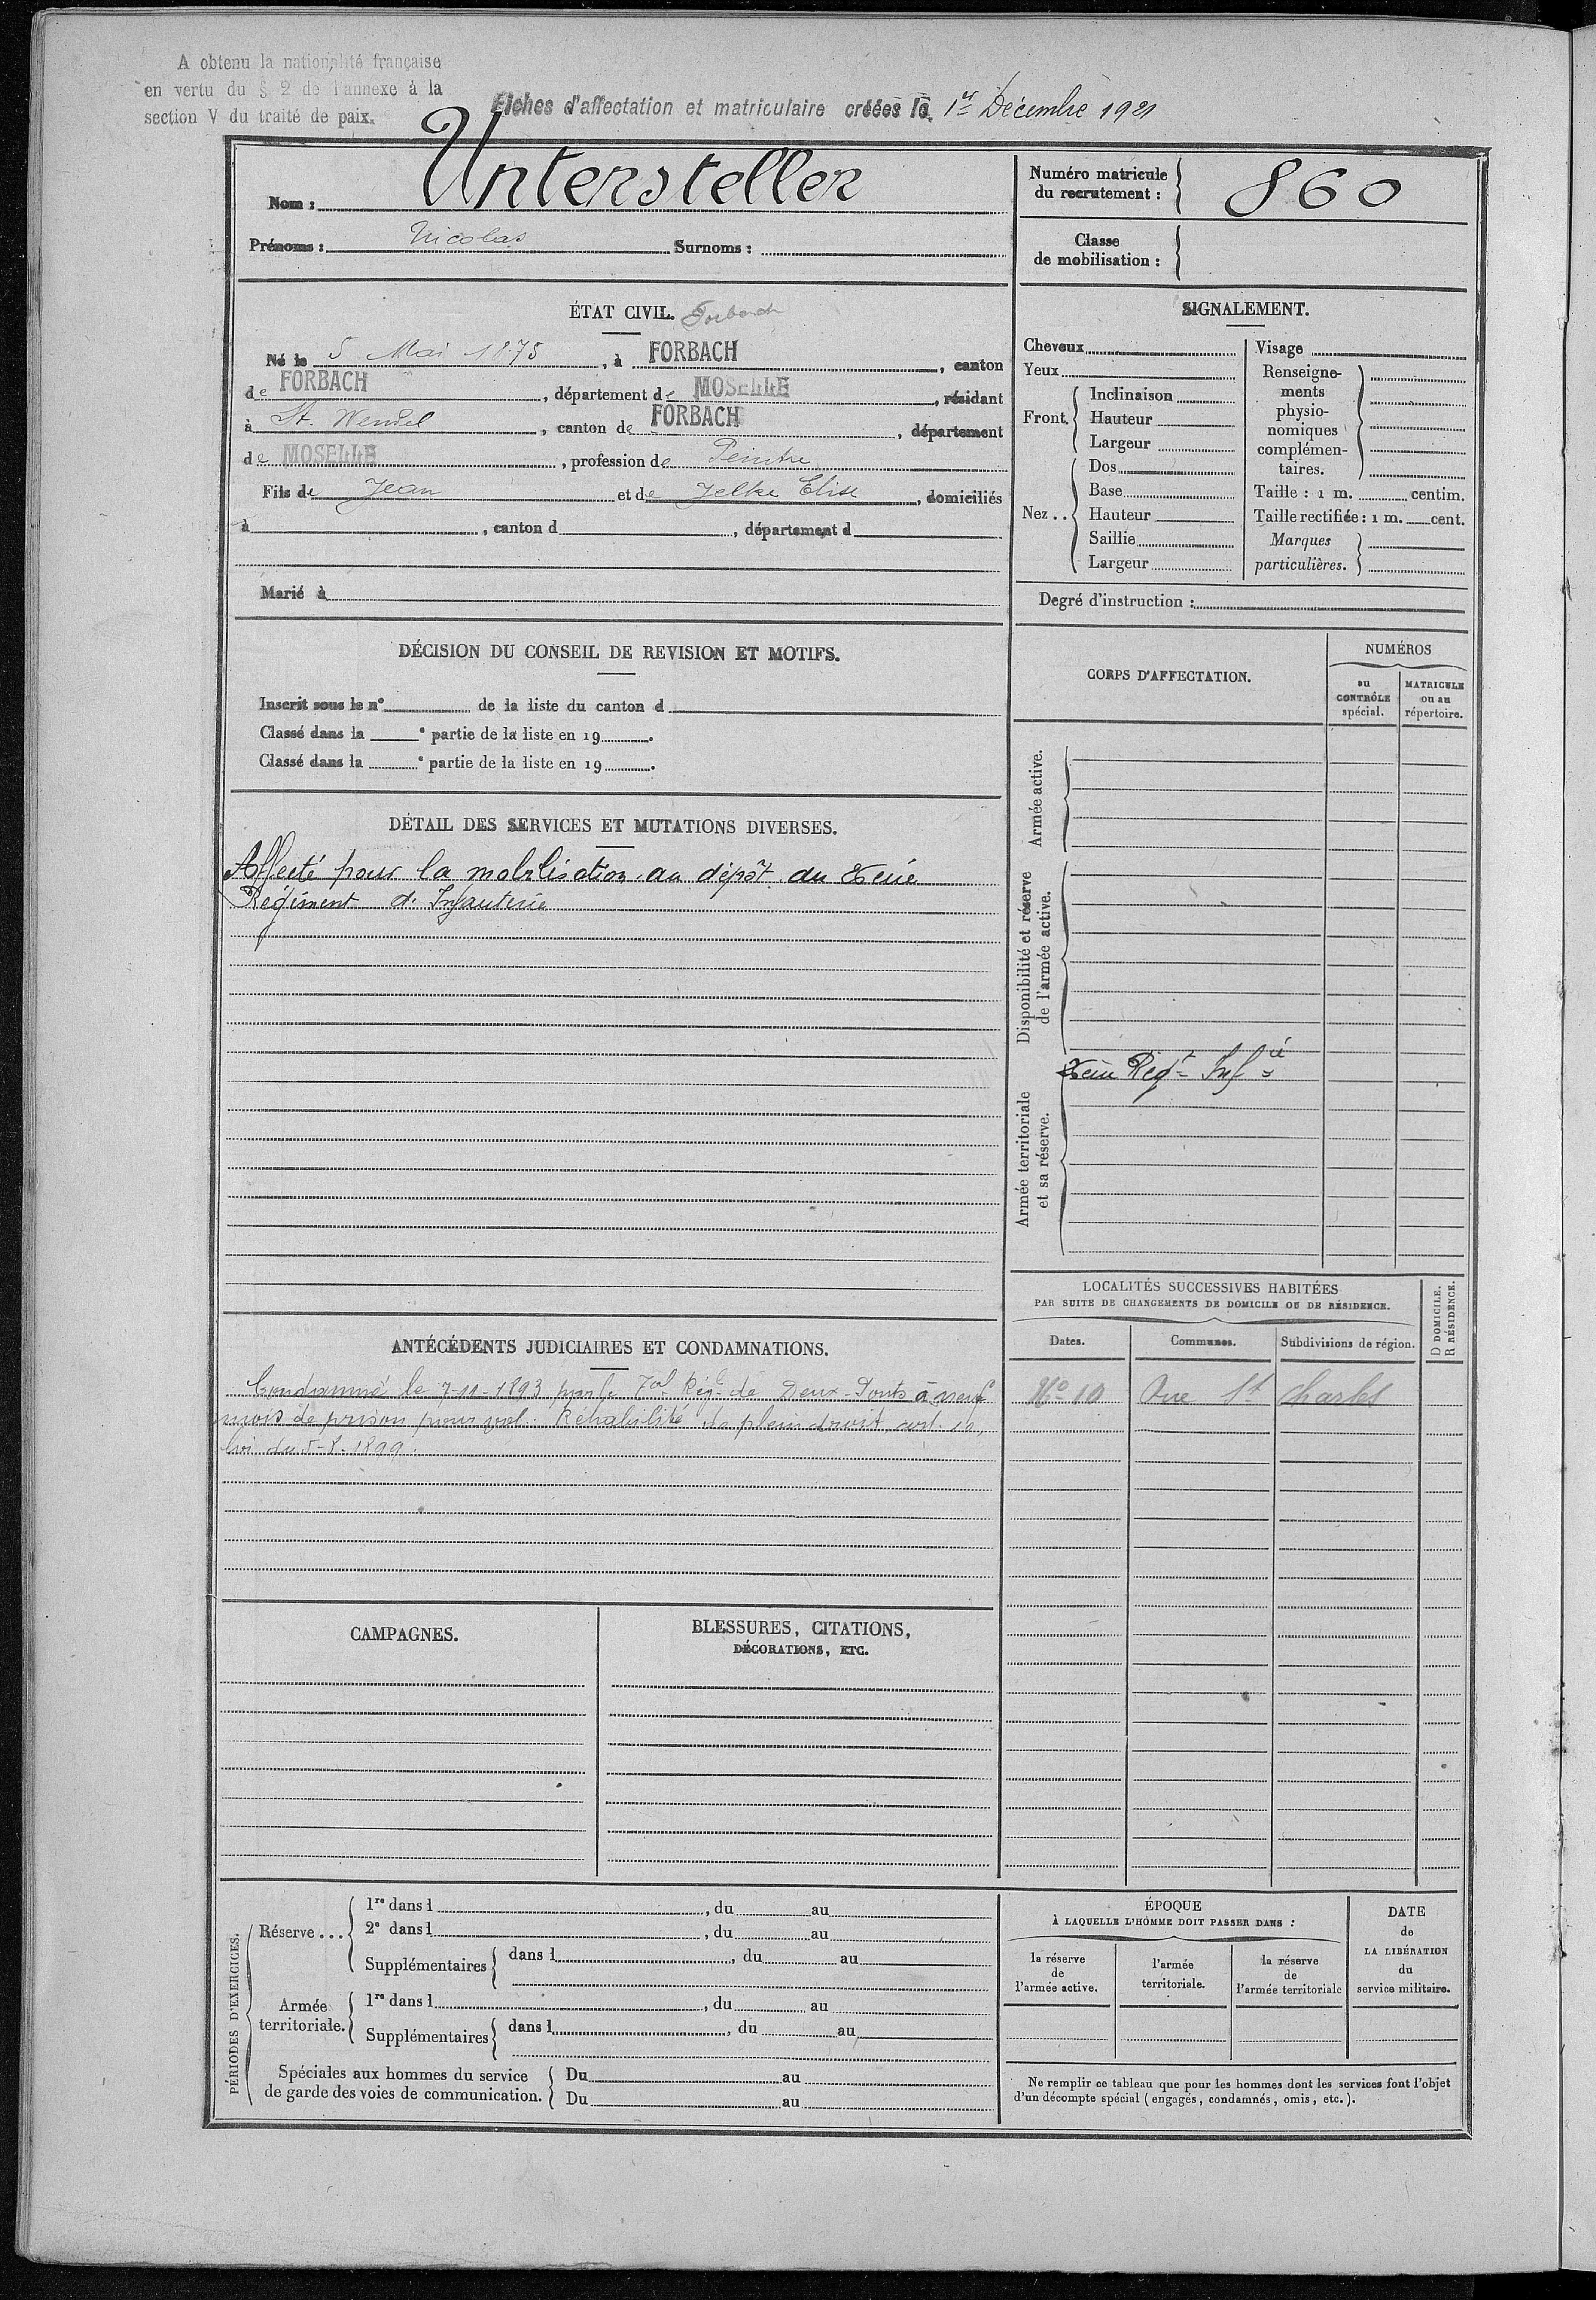 A obtenu la nationalité française
en vertu du § 2 de l'annexe à la
section V du traité de paix.
Fiches d'affectation et matriculaire créées le 1er Décembre 1921
Nom : Untersteller
Prénoms : Nicolas Surnoms :
Numéro matricule
du recrutement : 860
Classe
de mobilisation :
ÉTAT CIVIL. Forbach
Né le 5 Mai 1875, à FORBACH, canton
de FORBACH, département de MOSELLE, résidant
à St. Wendel, canton de FORBACH, département
de MOSELLE, profession de Peintre
Fils de Jean et de Jelke Elise, domiciliés
à , canton d , département d
Marié à
SIGNALEMENT.
Cheveux
Yeux
Front. Inclinaison
Hauteur
Largeur
Nez .. Dos
Base
Hauteur
Saillie
Largeur
Visage
Renseigne-
ments
physio-
nomiques
complémen-
taires.
Taille : 1 m. centim.
Taille rectifiée : 1 m. cent.
Marques
particulières.
Degré d'instruction :
DÉCISION DU CONSEIL DE REVISION ET MOTIFS.
Inscrit sous le n° de la liste du canton d
Classé dans la e partie de la liste en 19 .
Classé dans la e partie de la liste en 19 .
CORPS D'AFFECTATION.
NUMÉROS
au
CONTRÔLE
spécial.
MATRICULE
ou au
répertoire.
Armée active.
Disponibilité et réserve
de l'armée active.
Armée territoriale
et sa réserve.
Regt Infie
DÉTAIL DES SERVICES ET MUTATIONS DIVERSES.
Affecté pour la mobilisation au dépôt du
Régiment d'Infanterie
ANTÉCÉDENTS JUDICIAIRES ET CONDAMNATIONS.
Condamné le 7-11-1893 par le Tal Rég. de Deux-Ponts à neuf
mois de prison pour vol. Réhabilité de plein droit, art. 10,
loi du 5-8-1899.
LOCALITÉS SUCCESSIVES HABITÉES
PAR SUITE DE CHANGEMENTS DE DOMICILE OU DE RÉSIDENCE.
Dates.
Communes.
Subdivisions de région.
D DOMICILE.
R RÉSIDENCE.
No 10 Rue St Charles
CAMPAGNES.
BLESSURES, CITATIONS,
DÉCORATIONS, ETC.
PÉRIODES D'EXERCICES.
Réserve ... 1re dans l , du au
2e dans l , du au
Supplémentaires dans l , du au
Armée
territoriale. 1re dans l , du au
Supplémentaires dans l , du au
Spéciales aux hommes du service
de garde des voies de communication.
Du au
Du au
ÉPOQUE
À LAQUELLE L'HOMME DOIT PASSER DANS :
la réserve
de
l'armée active.
l'armée
territoriale.
la réserve
de
l'armée territoriale
DATE
de
LA LIBÉRATION
du
service militaire.
Ne remplir ce tableau que pour les hommes dont les services font l'objet
d'un décompte spécial (engagés, condamnés, omis, etc.).